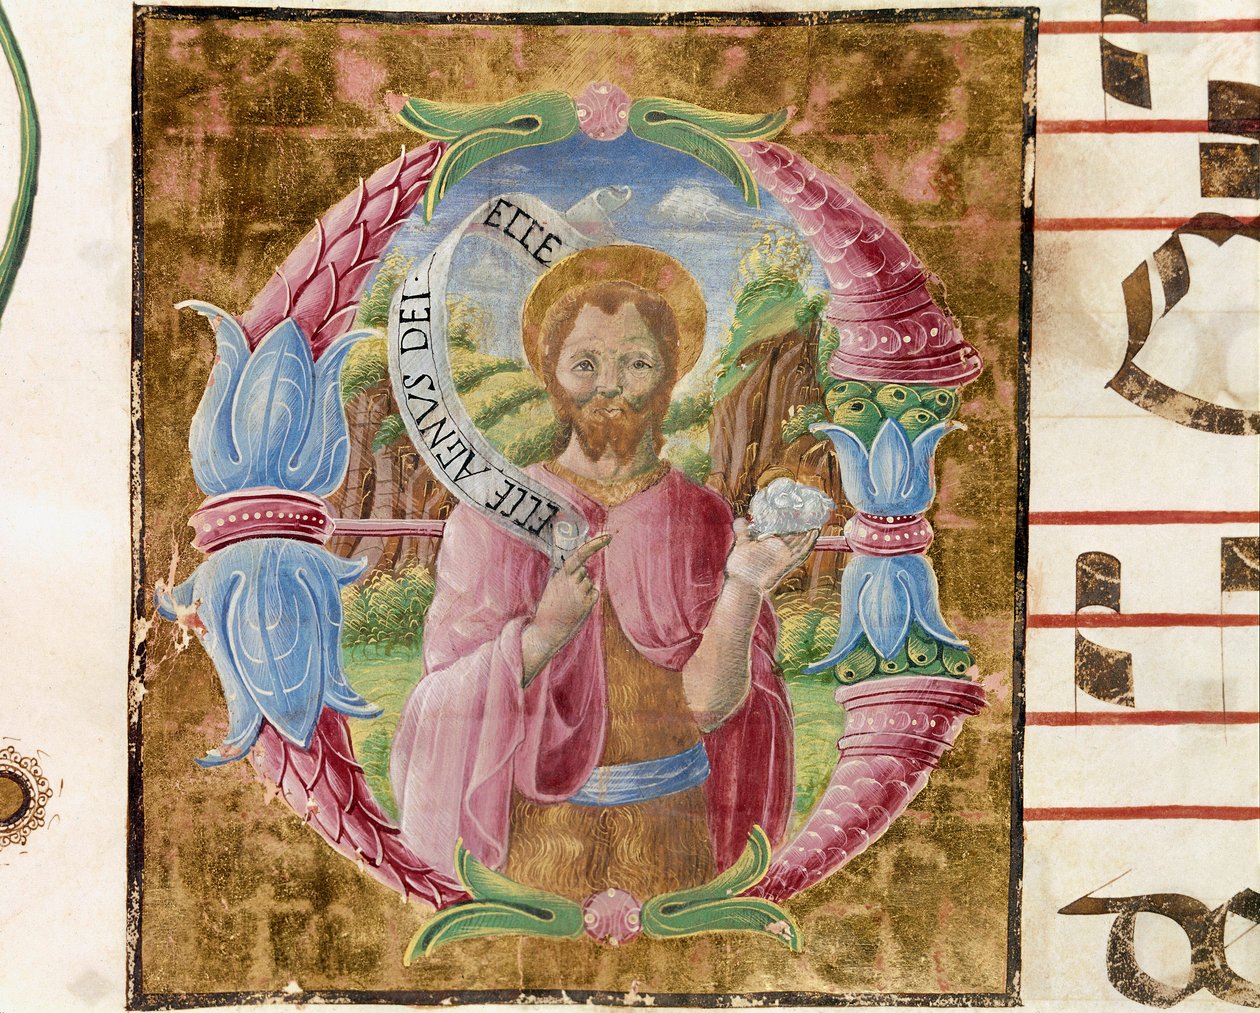 ECCE AGNVS DEI ·
ECCE